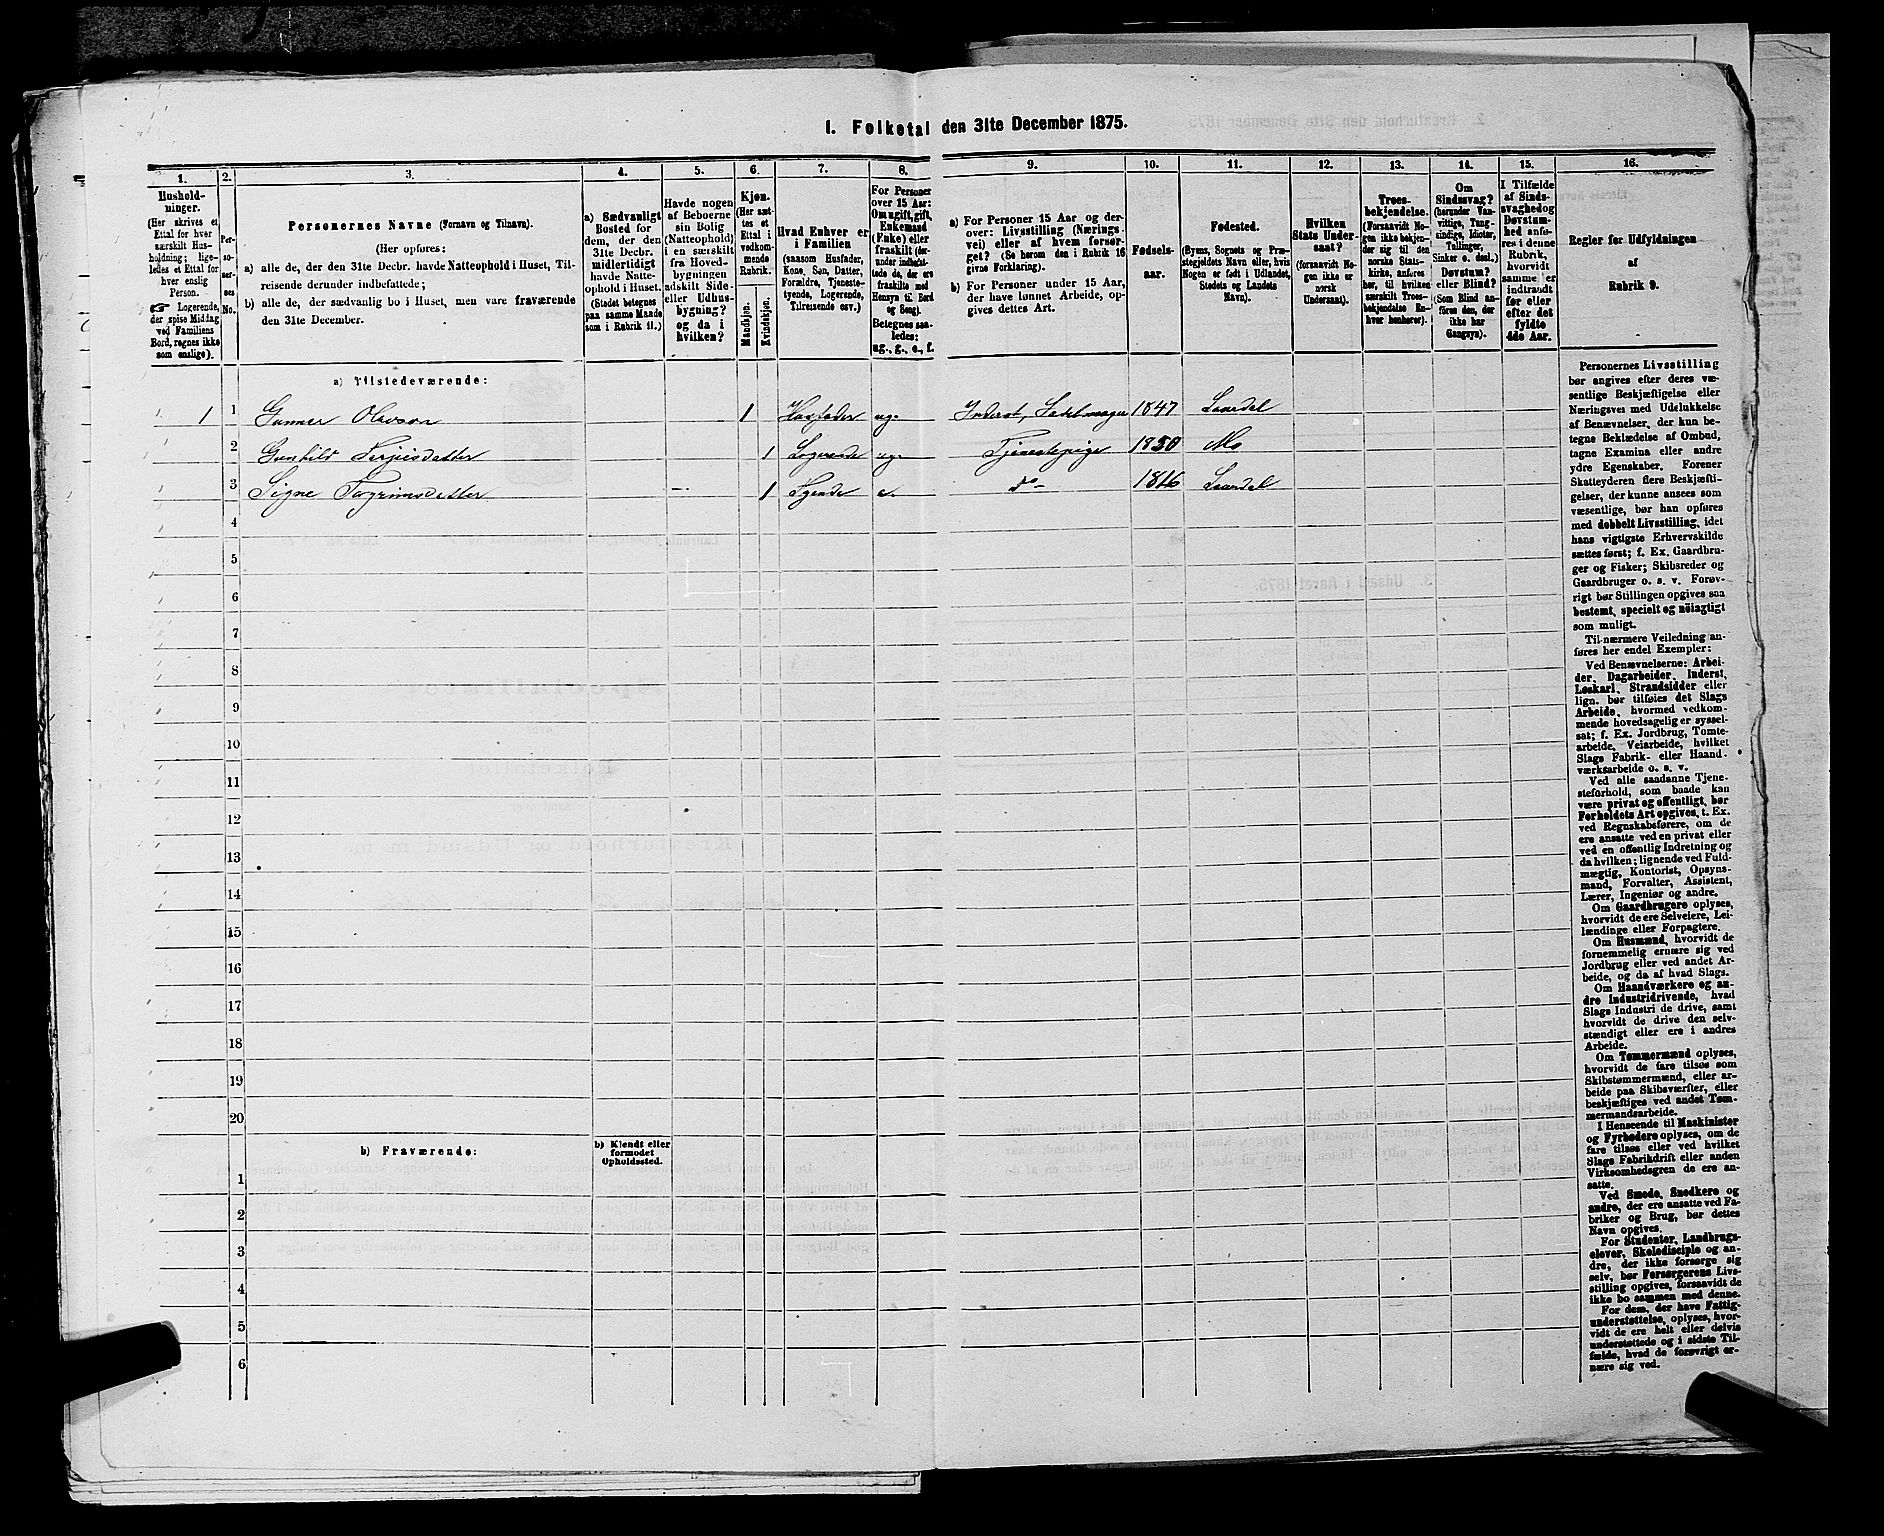 1. Folketal den 31te December 1875.
1. 2. 3. 4. 5. 6. 7. 8. 9. 10. 11. 12. 13. 14. 15. 16.
Hushold-
ninger.
(Her skrives et
Ettal for hver
særskilt Hus-
holdning; lige-
ledes et Ettal for
hver enslig
Person.
☞ Logerende,
der spise Middag
ved Familiens
Bord, regnes ikke
som enslige).
Per-
so-
ner-
nes
No.
Personernes Navne (Fornavn og Tilnavn).
(Her opføres:
a) alle de, der den 31te Decbr. havde Natteophold i Huset, Til-
reisende derunder indbefattede;
b) alle de, der sædvanlig bo i Huset, men vare fraværende
den 31te December.
a) Sædvanligt
Bosted for
dem, der den
31te Decbr.
midlertidigt
havde Natte-
ophold i Huset.
(Stedet betegnes
paa samme Maade
som i Rubrik 11.)
Havde nogen
af Beboerne
sin Bolig
(Natteophold)
i en særskilt
fra Hoved-
bygningen
adskilt Side-
eller Udhus-
bygning?
og da i
hvilken?
Kjøn.
(Her sæt-
tes et
Ettal i
vedkom-
mende
Rubrik.
Mandkjøn.
Kvindekjøn.
Hvad Enhver er
i Familien
(saasom Husfader,
Kone, Søn, Datter,
Forældre, Tjeneste-
tyende, Logerende,
Tilreisende osv.)
For Personer
over 15 Aar:
Om ugift, gift,
Enkemand
(Enke) eller
fraskilt (der-
under indbefat-
tede de, der ere
fraskilte med
Hensyn til Bord
og Seng).
Betegnes saa-
ledes:
ug., g., e., f.
a) For Personer 15 Aar og der-
over: Livsstilling (Nærings-
vei) eller af hvem forsør-
get? (Se herom den i Rubrik 16
givne Forklaring).
b) For Personer under 15 Aar,
der have lønnet Arbeide, op-
gives dettes Art.
Fødsels-
aar.
Fødested.
(Byens, Sognets og Præ-
stegjeldets Navn eller, hvis
Nogen er født i Udlandet,
Stedets og Landets
Navn).
Hvilken
Stats Under-
saat?
(forsaavidt No-
gen ikke er
norsk
Undersaat).
Troes-
bekjendelse.
(Forsaavidt No-
gen ikke bekjen-
der sig til den
norske Stats-
kirke, anføres
her, til hvilken
særskilt Troes-
bekjendelse En-
hver henhører).
Om
Sindssvag?
(herunder Van-
vittige, Tung-
sindige, Idioter,
Tullinger,
Sinker o. desl.)
Døvstum?
eller Blind?
(Som Blind an-
føres den, der
ikke har
Gangsyn).
I Tilfælde
af Sinds-
svaghed og
Døvstum-
hed anfø-
res i denne
Rubrik,
hvorvidt
samme er
indtraadt
før eller
efter det
fyldte
4de Aar.
Regler for Udfyldningen
af
Rubrik 9.
a) Tilstedeværende:
1 1 Gunner Olavson 1 Husfader ug. Inderst, Sadelmager 1847 Laardal
2 Gunhild Terjesdatter 1 Logerende ug. Tjenestepige 1850 Mo
3 Signe Torgrimsdatter — 1 e. do — 1816 Laardal
4
5
6
7
8
9
10
11
12
13
14
15
16
17
18
19
20
b) Fraværende:
b) Kjendt eller
formodet
Opholdssted.
1
2
3
4
5
6
Personernes Livsstilling
bør angives efter deres væ-
sentlige Beskjæftigelse eller
Næringsvei med Udelukkelse
af Benævnelser, der kun be-
tegne Beklædelse af Ombud,
tagne Examina eller andre
ydre Egenskaber. Forener
Skatteyderen flere Beskjæfti-
gelser, der kunne ansees som
væsentlige, bør han opføres
med dobbelt Livsstilling, idet
hans vigtigste Erhvervskilde
sættes først; f. Ex. Gaardbru-
ger og Fisker; Skibsreder og
Gaardbruger o. s. v. Forøv-
rigt bør Stillingen opgives saa
bestemt, specielt og nøiagtigt
som muligt.
Til nærmere Veiledning an-
føres her endel Exempler:
Ved Benævnelserne: Arbei-
der, Dagarbeider, Inderst,
Løskarl, Strandsidder eller
lign. bør tilføies det Slags
Arbeide, hvormed vedkom-
mende hovedsagelig er syssel-
sat; f. Ex. Jordbrug, Tomte-
arbeide, Veiarbeide, hvilket
Slags Fabrik- eller Haand-
værksarbeide o. s. v.
Ved alle saadanne Tjene-
steforhold, som baade kan
være privat og offentligt, bør
Forholdets Art opgives, t. Ex.
ved Regnskabsførere, om de
ere ansatte ved en privat eller
ved en offentlig Indretning og
da hvilken; lignende ved Fuld-
mægtig, Kontorist, Opsyns-
mand, Forvalter, Assistent,
Lærer, Ingeniør og andre.
Om Gaardbrugere oplyses,
hvorvidt de ere Selveiere, Lei-
lændinge eller Forpagtere.
Om Husmænd, hvorvidt de
fornemmelig ernære sig ved
Jordbrug eller ved andet Ar-
beide, og da af hvad Slags.
Om Haandværkere og an-
dre Industridrivende, hvad
Slags Industri de drive, samt
hvorvidt de drive den selv-
stændigt eller ere i andres
Arbeide.
Om Tømmermænd oplyses,
hvorvidt de fare tilsøs som
Skibstømmermænd, eller ar-
beide paa Skibsværfter, eller
beskjæftiges ved andet Tøm-
mermandsarbeide.
I Henseende til Maskinister
og Fyrbødere oplyses, om de
fare tilsøs eller ved hvilket
Slags Fabrikdrift eller anden
Virksomhedsgren de ere an-
satte.
Ved Smede, Snedkere og
andre, der ere ansatte ved Fa-
briker og Brug, bør dettes
Navn opgives.
For Studenter, Landbrugs-
elever, Skoledisciple og an-
dre, der ikke forsørge sig
selv, bør Forsørgerens Livs-
stilling opgives, forsaavidt de
ikke bo sammen med denne.
For dem, der have Fattig-
understøttelse, oplyses, hvor-
vidt de ere helt eller delvis
understøttede og i sidste Til-
fælde, hvad de forøvrigt er-
nære sig ved.